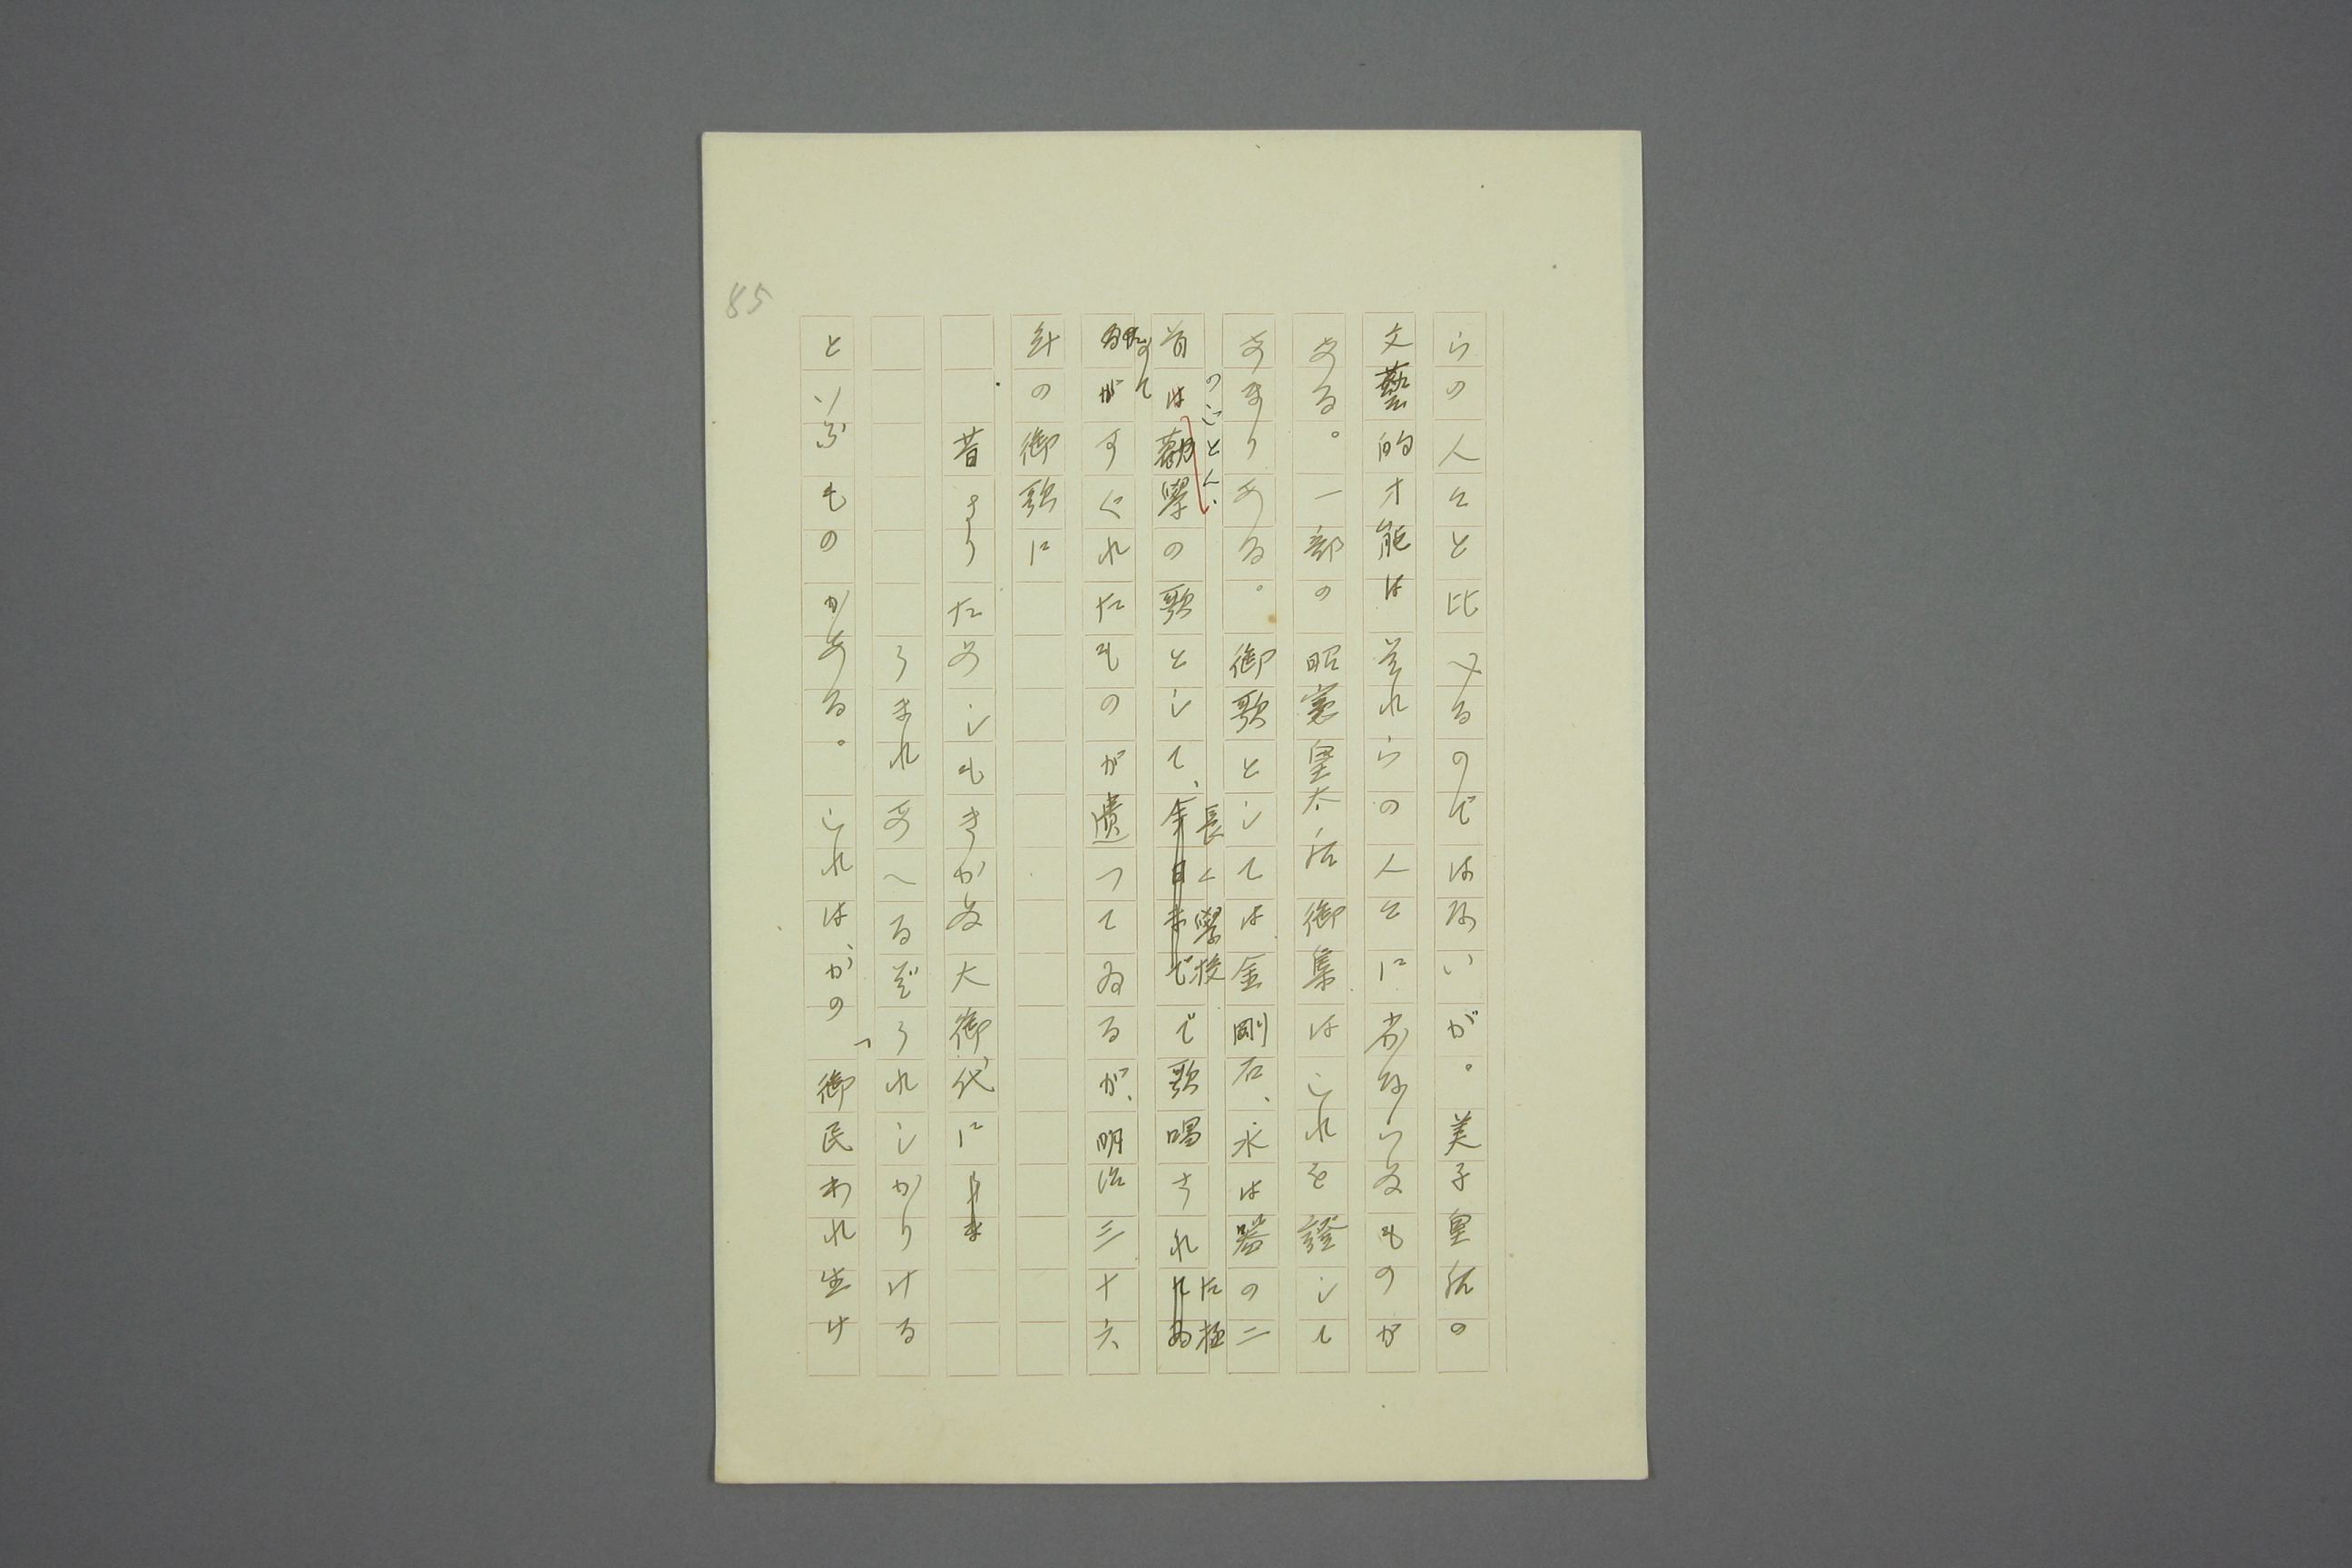 85
らの人々と比べるのではないが。美子皇后の
文藝的才能はそれらの人々に劣らないものが
ある。一部の昭憲皇太后御集はこれを證して
あまりある。御歌としては金剛石、水は器の二
のごとき
首は勸學の歌として、今日まで
長く學校
で歌唱されてゐ
た極
るがすぐれたものが遺つてゐるが、明治三十六
年の御歌に
昔よりためしもきかぬ大御代に
うまれあへるぞうれしかりける
といふものがある。これは、かの「御民われ生け